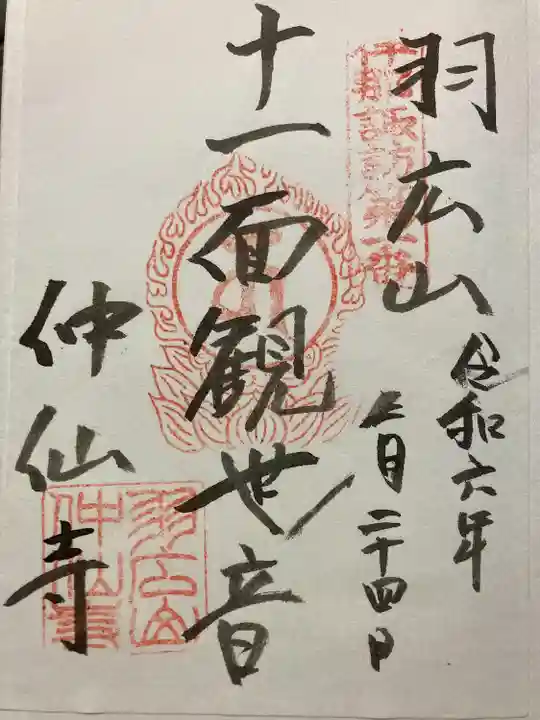 羽広山
令和六年
二十四日
十一面観世音
仲仙寺
羽広山
仲仙寺